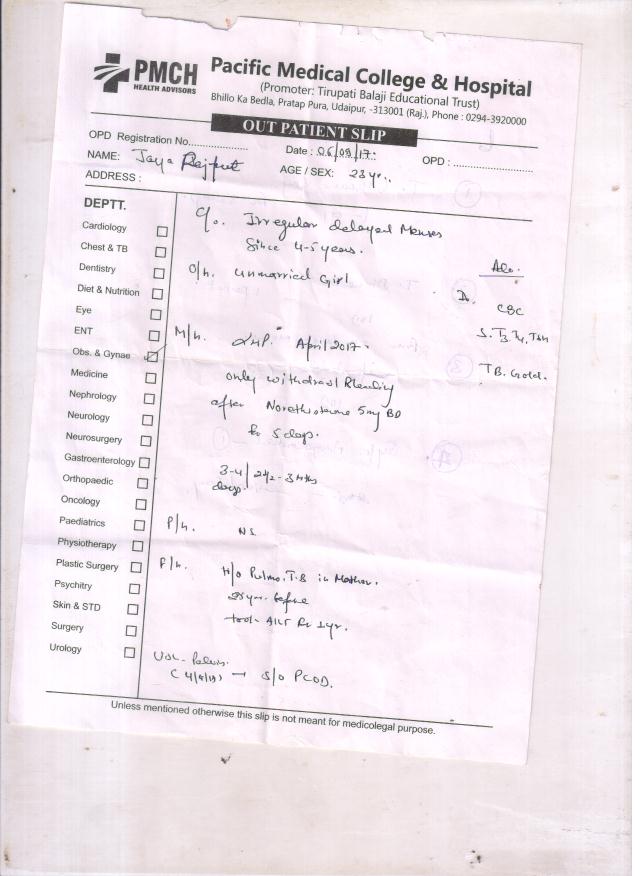 PMCH
HEALTH ADVISORS
Pacific Medical College & Hospital
(Promoter: Tirupati Balaji Educational Trust)
Bhillo Ka Bedla, Pratap Pura, Udaipur, -313001 (Raj.), Phone : 0294-3920000
OUT PATIENT SLIP
OPD Registration No.................. Date : 06/09/17. OPD : ........................
NAME: Jaya Rajput AGE / SEX: 23 yr.
ADDRESS :
DEPTT.
Cardiology
Chest & TB
Dentistry
Diet & Nutrition
Eye
ENT
Obs. & Gynae
Medicine
Nephrology
Neurology
Neurosurgery
Gastroenterology
Orthopaedic
Oncology
Paediatrics
Physiotherapy
Plastic Surgery
Psychitry
Skin & STD
Surgery
Urology
C/o. Irregular delayed Menses
Since 4-5 years.
O/h. unmarried Girl
M/h. LMP. April 2017.
only withdrawl Bleeding
after Norethisterone 5mg BD
for 5 days.
3-4 | 2½-3 mths
days.
P/h. NS
F/h. H/o Pulmo. T.B in Mother.
before
took AKT 1yr.
USG-Pelvis.
→ S/o PCOD.
Adv.
CBC
S. T3, T4, TSH
TB. Gold.
Unless mentioned otherwise this slip is not meant for medicolegal purpose.